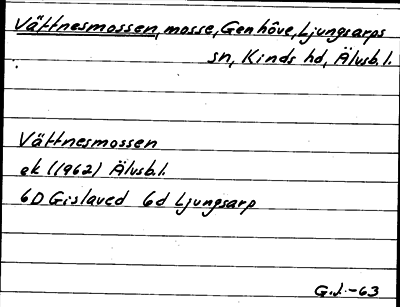 Vättnesmossen, mosse, Genhöve, Ljungsarps
sn, Kinds hd, Älvsb.l.
Vättnesmossen
ek (1962) Älvsb.l.
6D Gislaved 6d Ljungsarp
G.J.-63